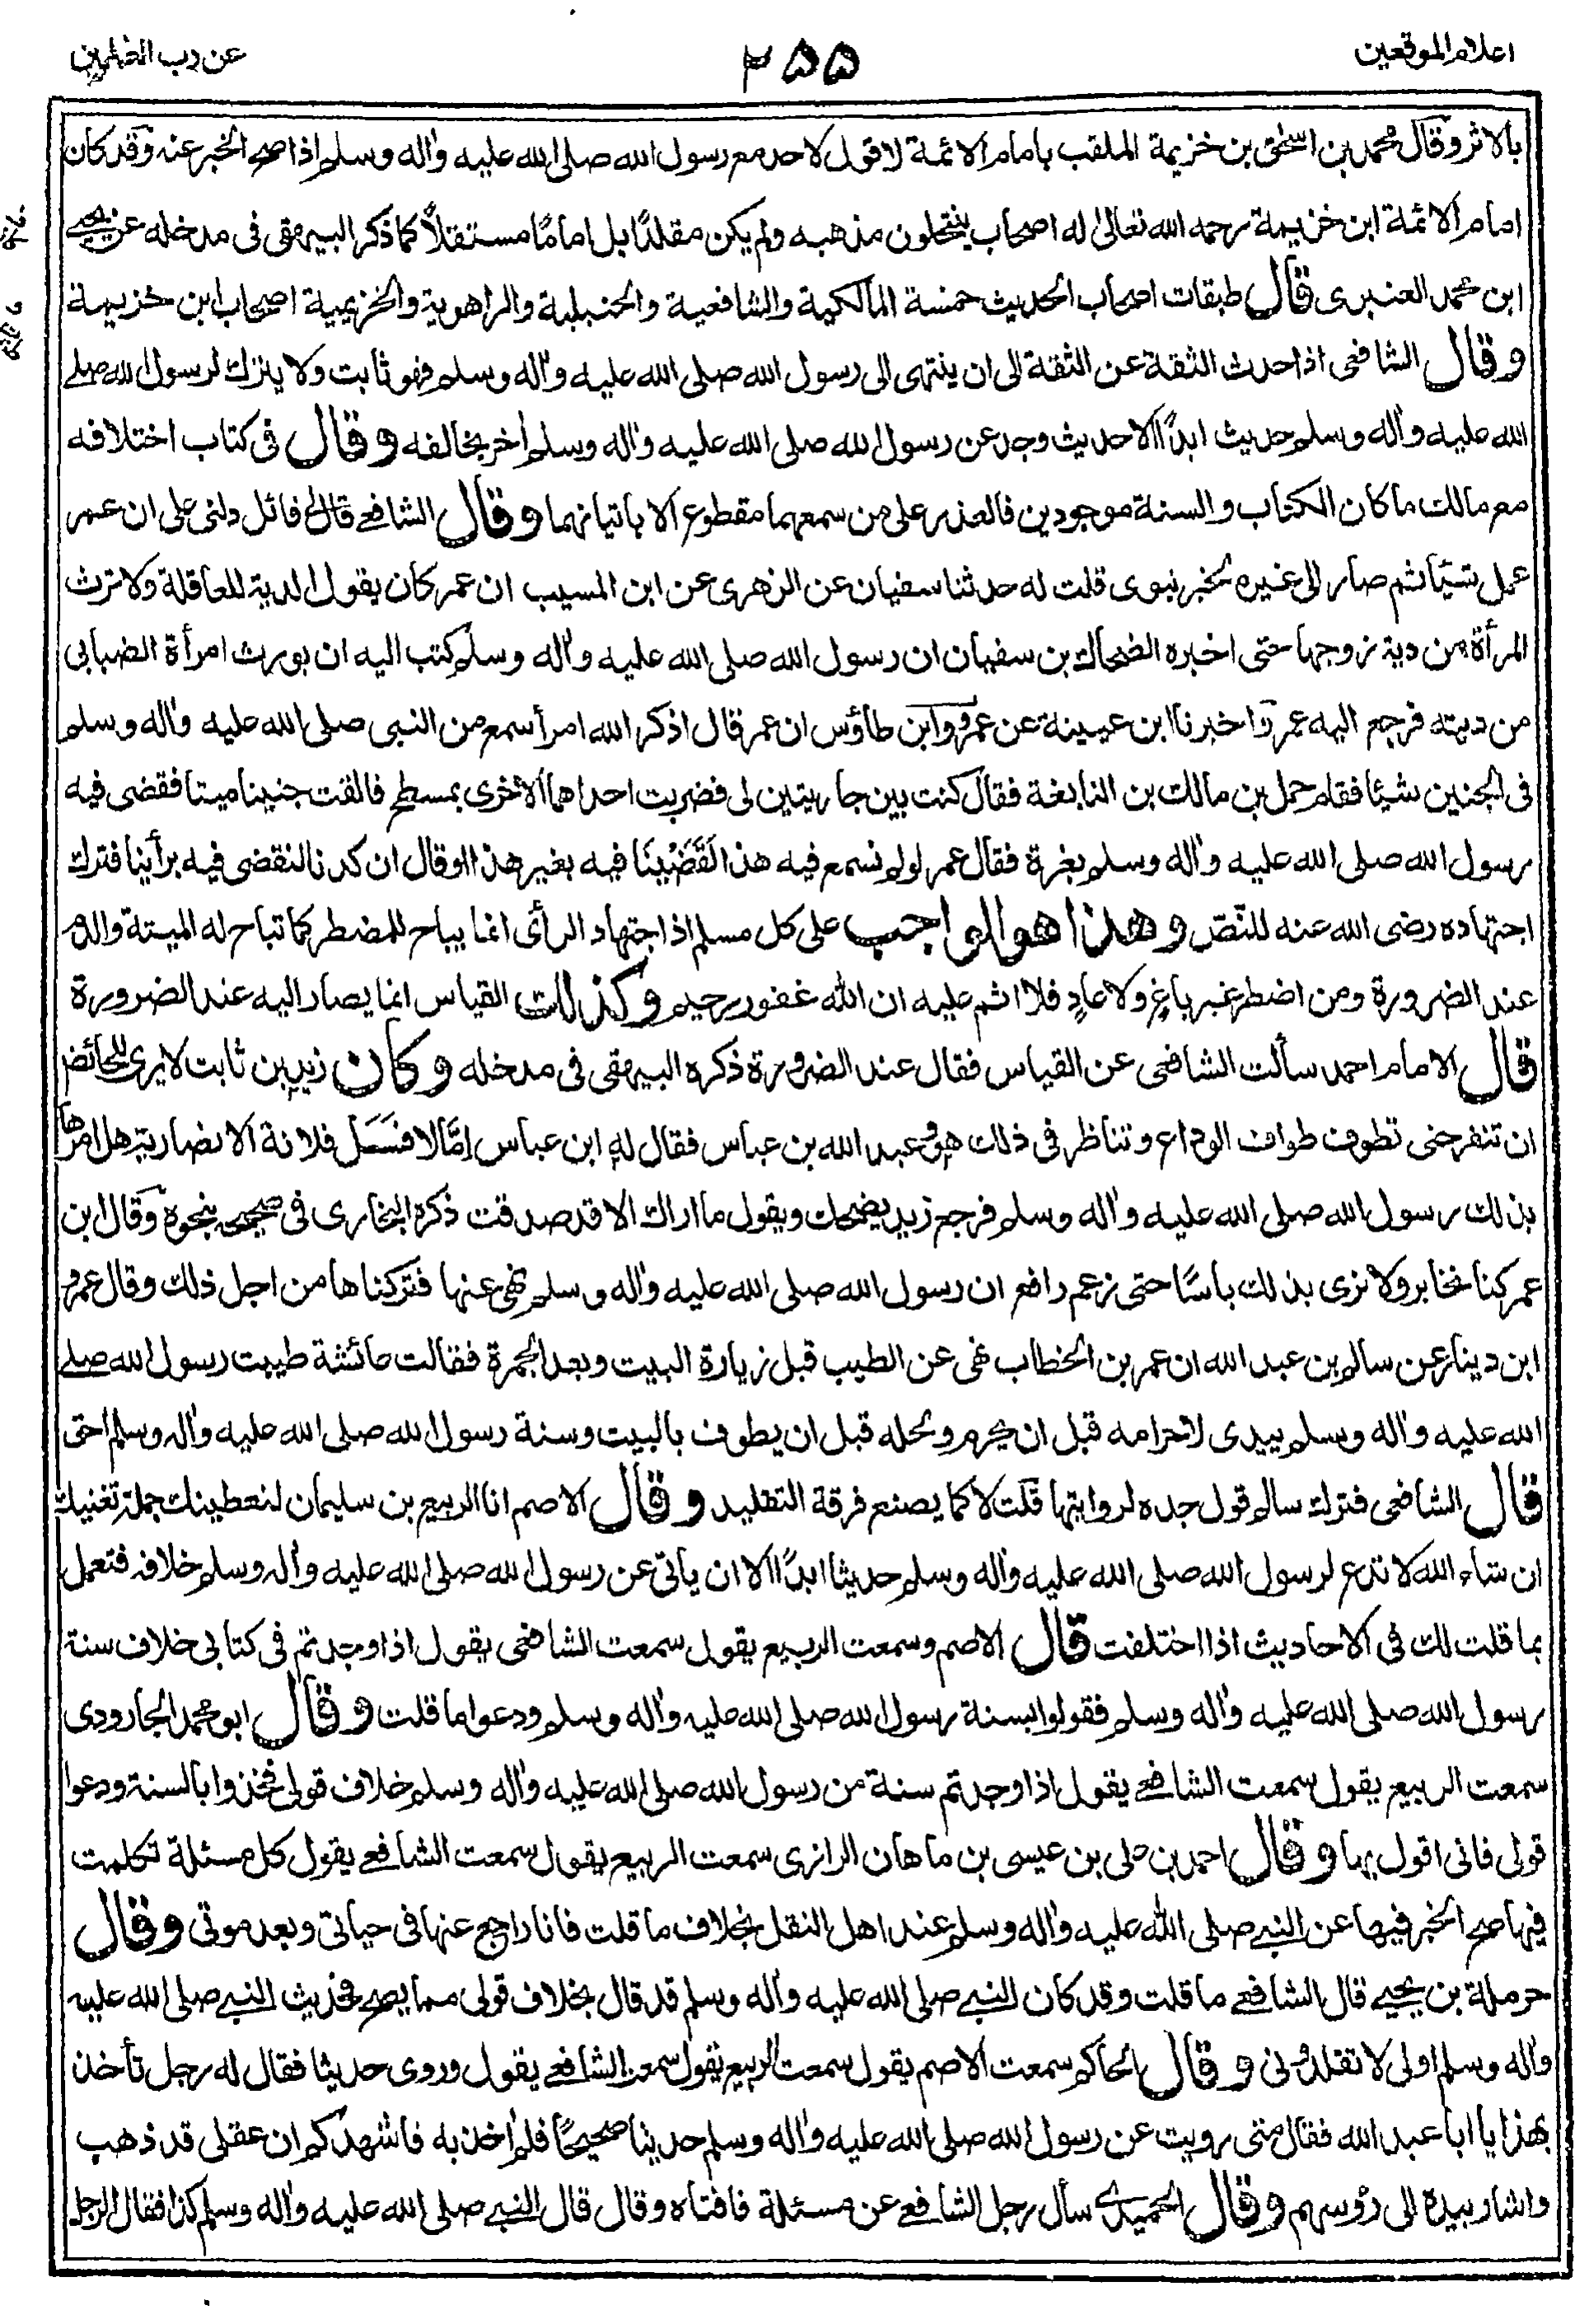 اعلام الموقعين
٢٥٥
عن رب العلمين
بالاثر وقال محمد بن اسحق بن خزيمة الملقب بامام الائمة لا قول لاحد مع رسول الله صلى الله عليه واله وسلم اذا صح الخبر عنه وقد كان
امام الائمة ابن خزيمة رحمه الله تعالى له اصحاب ينتحلون مذهبه ولم يكن مقلدًا بل امامًا مستقلاً كما ذكر البيهقى فى مدخله عن يحيى
ابن محمد العنبرى قال طبقات اصحاب الحديث خمسة المالكية والشافعية والحنبلية والراهوية والخزيمية اصحاب ابن خزيمة
وقال الشافعى اذا حدث الثقة عن الثقة الى ان ينتهى الى رسول الله صلى الله عليه واله وسلم فهو ثابت ولا يترك لرسول الله صلى
الله عليه واله وسلم حديث ابدًا الا حديث وجد عن رسول الله صلى الله عليه واله وسلم اخر يخالفه وقال فى كتاب اختلافه
مع مالك ما كان الكتاب والسنة موجودين فالعذر على من سمعهما مقطوع الا باتيانهما وقال الشافعى قال لى قائل دلنى على ان عمر
عمل شيئا ثم صار الى غيره لخبر نبوى قلت له حدثنا سفيان عن الزهرى عن ابن المسيب ان عمر كان يقول الدية للعاقلة ولا ترث
المرأة من دية زوجها حتى اخبره الضحاك بن سفيان ان رسول الله صلى الله عليه واله وسلم كتب اليه ان يورث امرأة الضبابى
من ديته فرجع اليه عمر واخبرنا ابن عيينة عن عمرو وابن طاؤس ان عمر قال اذكر الله امرأ سمع من النبى صلى الله عليه واله وسلم
فى الجنين شيئا فقام حمل بن مالك بن النابغة فقال كنت بين جاريتين لى فضربت احداهما الاخرى بمسطح فالقت جنينا ميتا فقضى فيه
رسول الله صلى الله عليه واله وسلم بغرة فقال عمر لو لم نسمع فيه هذا لَقَضَيْنَا فيه بغير هذا او قال ان كدنا لنقضى فيه برأينا فترك
اجتهاده رضى الله عنه للنّص وهذا هو الواجب على كل مسلم اذ اجتهاد الرأى انما يباح للمضطر كما تباح له الميتة والدم
عند الضرورة ومن اضطر غير باغٍ ولا عادٍ فلا اثم عليه ان الله غفور رحيم وكذلك القياس انما يصار اليه عند الضرورة
قال الامام احمد سألت الشافعى عن القياس فقال عند الضرورة ذكره البيهقى فى مدخله وكان زيد بن ثابت لا يرى للحائض
ان تنفر حتى تطوف طواف الوداع وتناظر فى ذلك هو وعبد الله بن عباس فقال له ابن عباس اِمَّا لا فسَل فلانة الانصارية هل امرها
بذلك رسول الله صلى الله عليه واله وسلم فرجع زيد يضحك ويقول ما اراك الا قد صدقت ذكره البخارى فى صحيحه بنحوه وقال ابن
عمر كنا نخابر ولا نرى بذلك باسًا حتى زعم رافع ان رسول الله صلى الله عليه واله وسلم نهى عنها فتركناها من اجل ذلك وقال عمرو
ابن دينار عن سالم بن عبد الله ان عمر بن الخطاب نهى عن الطيب قبل زيارة البيت وبعد الجمرة فقالت عائشة طيبت رسول الله صلى
الله عليه واله وسلم بيدى لاحرامه قبل ان يحرم ولحله قبل ان يطوف بالبيت وسنة رسول الله صلى الله عليه واله وسلم احق
قال الشافعى فترك سالم قول جده لروايتها قلت لا كما يصنع فرقة التقليد وقال الاصم انا الربيع بن سليمان لنعطينك جملة تغنيك
ان شاء الله لا تدع لرسول الله صلى الله عليه واله وسلم حديثا ابدًا الا ان ياتى عن رسول الله صلى الله عليه واله وسلم خلافه فتعمل
بما قلت لك فى الاحاديث اذا اختلفت قال الاصم وسمعت الربيع يقول سمعت الشافعى يقول اذا وجدتم فى كتابى خلاف سنة
رسول الله صلى الله عليه واله وسلم فقولوا بسنة رسول الله صلى الله عليه واله وسلم ودعوا ما قلت وقال ابو محمد الجارودى
سمعت الربيع يقول سمعت الشافعى يقول اذا وجدتم سنة من رسول الله صلى الله عليه واله وسلم خلاف قولى فخذوا بالسنة ودعوا
قولى فانى اقول بها وقال احمد بن على بن عيسى بن ماهان الرازى سمعت الربيع يقول سمعت الشافعى يقول كل مسئلة تكلمت
فيها صح الخبر فيها عن النبى صلى الله عليه واله وسلم عند اهل النقل بخلاف ما قلت فانا راجع عنها فى حياتى وبعد موتى وقال
حرملة بن يحيى قال الشافعى ما قلت وقد كان النبى صلى الله عليه واله وسلم قد قال بخلاف قولى مما يصح فحديث النبى صلى الله عليه
واله وسلم اولى لا تقلدونى وقال الحاكم سمعت الاصم يقول سمعت الربيع يقول سمعت الشافعى يقول وروى حديثا فقال له رجل تأخذ
بهذا يا ابا عبد الله فقال متى رويت عن رسول الله صلى الله عليه واله وسلم حديثا صحيحًا فلم اخذ به فاشهدكم ان عقلى قد ذهب
واشار بيده الى رؤسهم وقال الحميدى سأل رجل الشافعى عن مسئلة فافتاه وقال قال النبى صلى الله عليه واله وسلم كذا فقال الرجل